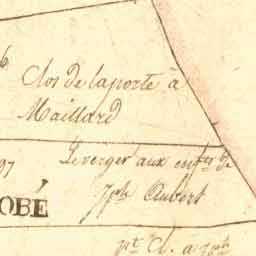 Clos de laporte à
Maillard
97
Leverger aux enf.ts de
Jph Auvert
OBÉ